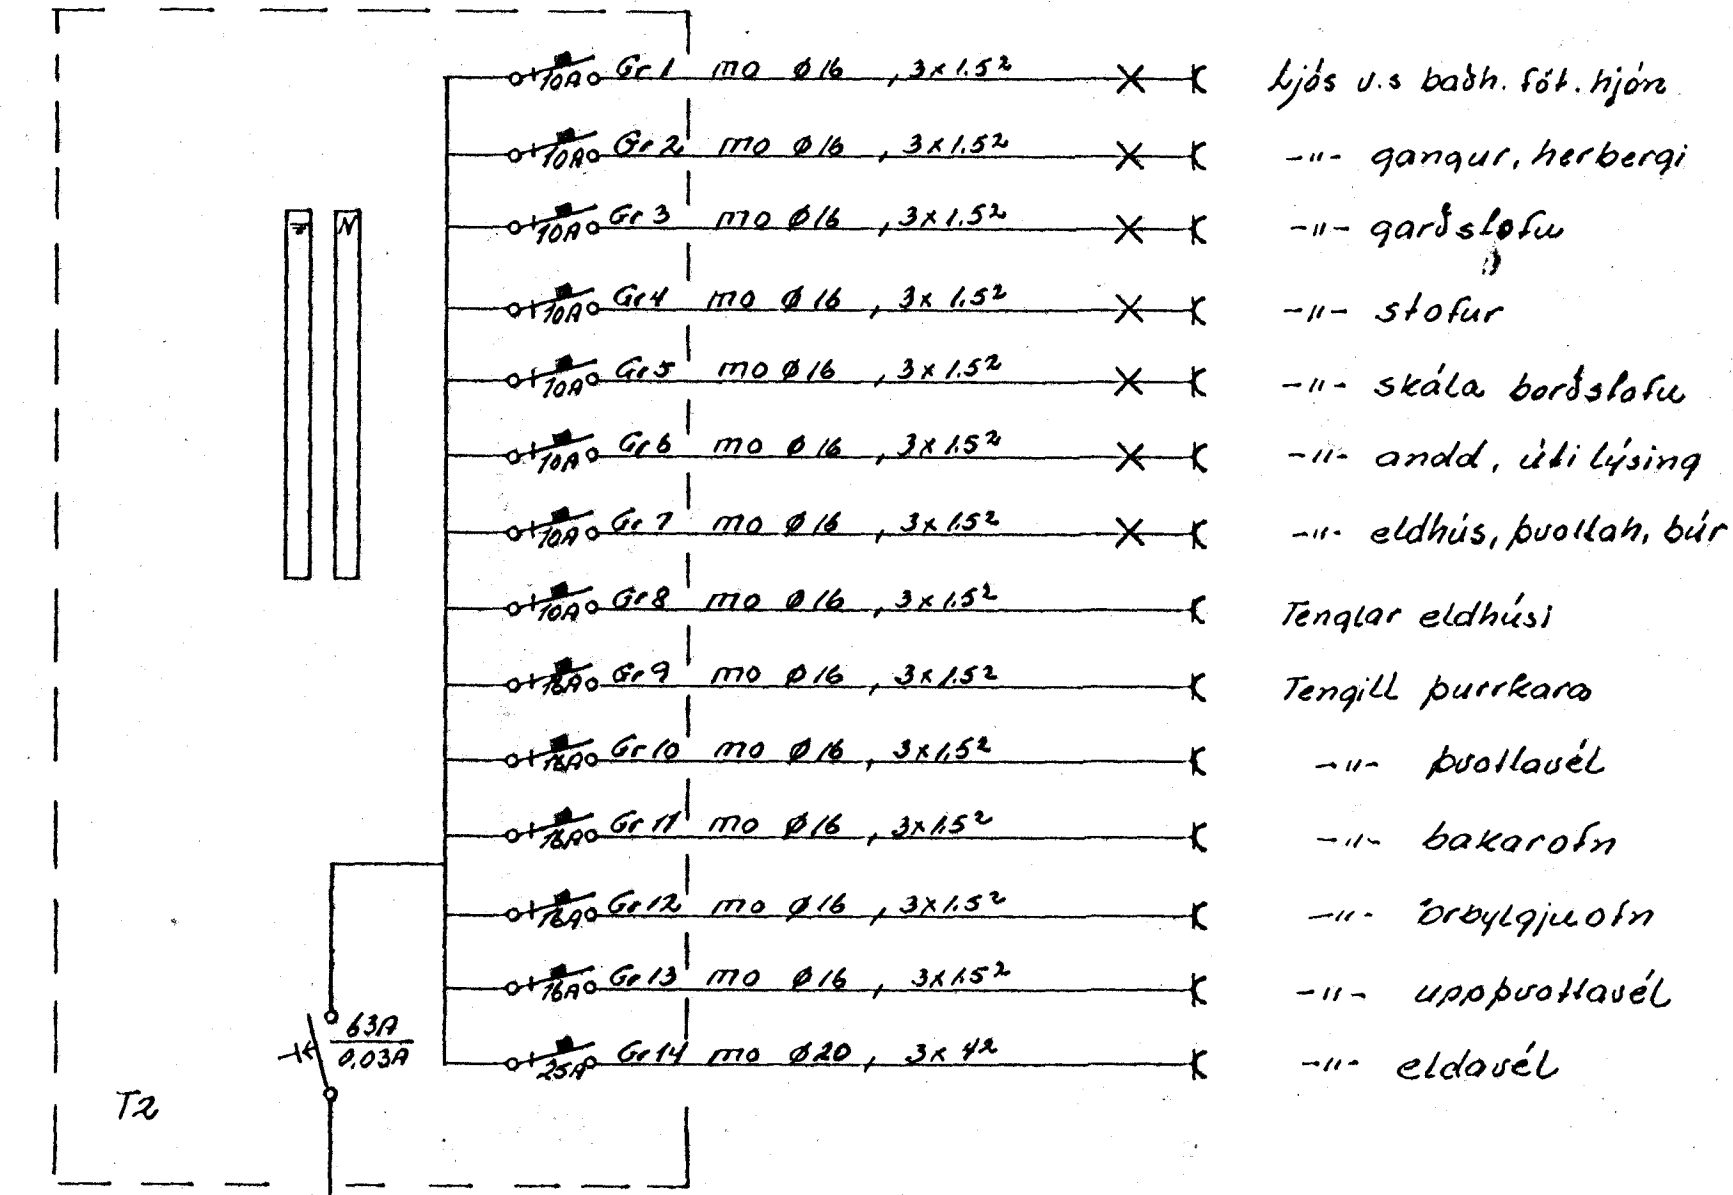 10A Gr 1 mo ø 16 , 3x1.5² Ljós v.s baðh. föt. hjón
10A Gr 2 mo ø 16 , 3x1.5² -"- gangur, herbergi
10A Gr 3 mo ø 16 , 3x1.5² -"- garðstofu
10A Gr 4 mo ø 16 , 3x1.5² -"- stofur
10A Gr 5 mo ø 16 , 3x1.5² -"- skála borðstofu
10A Gr 6 mo ø 16 , 3x1.5² -"- andd, úti lýsing
10A Gr 7 mo ø 16 , 3x1.5² -"- eldhús, þvottah, búr
10A Gr 8 mo ø 16 , 3x1.5² Tenglar eldhúsi
16A Gr 9 mo ø 16 , 3x1.5² Tengill þurrkara
16A Gr 10 mo ø 16 , 3x1.5² -"- þvottavél
16A Gr 11 mo ø 16 , 3x1.5² -"- bakarofn
16A Gr 12 mo ø 16 , 3x1.5² -"- örbylgjuofn
16A Gr 13 mo ø 16 , 3x1.5² -"- uppþvottavél
25A Gr 14 mo ø 20 , 3x4² -"- eldavél
63A
0.03A
T2
N